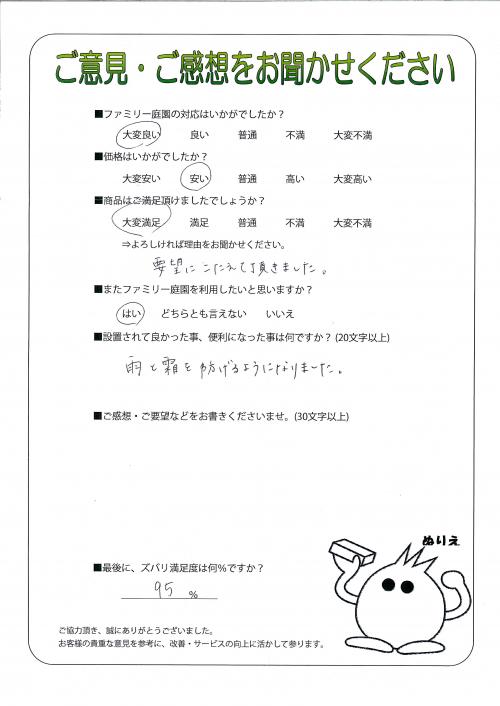 ご意見・ご感想をお聞かせください
■ファミリー庭園の対応はいかがでしたか？
大変良い 良い 普通 不満 大変不満
■価格はいかがでしたか？
大変安い 安い 普通 高い 大変高い
■商品はご満足頂けましたでしょうか？
大変満足 満足 普通 不満 大変不満
⇒よろしければ理由をお聞かせください。
要望にこたえて頂きました。
■またファミリー庭園を利用したいと思いますか？
はい どちらとも言えない いいえ
■設置されて良かった事、便利になった事は何ですか？(20文字以上)
雨と霜を防げるようになりました。
■ご感想・ご要望などをお書きくださいませ。(30文字以上)
ぬりえ
■最後に、ズバリ満足度は何％ですか？
95 %
ご協力頂き、誠にありがとうございました。
お客様の貴重な意見を参考に、改善・サービスの向上に活かして参ります。